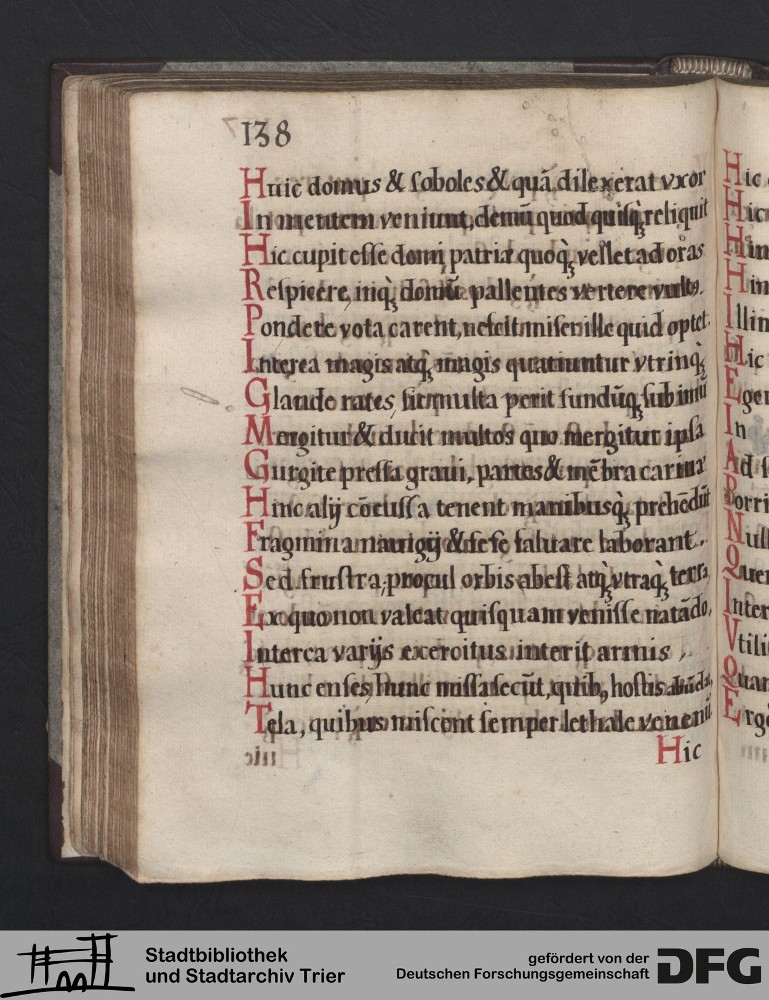 138
Huic domus & soboles & quã dilexerat vxor
In mentem veniunt, demũ quod quisq̃ reliquit
Hic cupit esse domi, patriæ quoq̃ vellet ad oras
Respicere, inq̃ domũ pallentes vertere vultꝰ.
Pondere vota carent, nescit miser ille quid optet:
Interea magis atq̃ magis quatiuntur vtrinq̃
Glande rates, sic multa perit fundũq̃ sub imũ
Mergitur & ducit multos quo mergitur ipsa
Gurgite pressa graui, partes & mẽbra carinæ
Hinc alij cõcussa tenent manibusq̃ prehẽdũt
Fragmina nauigij & sese saluare laborant.
Sed frustra, procul orbis abest atq̃ vtraq̃ terra,
Ex quo non valeat quisquam venisse natãdo.
Interea varijs exercitus interit armis,
Hunc enses, hunc missa secãt, quibꝰ hostis abũdat,
Tela, quibus miscent semper lethale venenũ
Hic
Hic
Hic
Hin
Hin
Illin
Hic
Eger
In
Ad s
Porri
Null
Quer
Inter
Vtili
Quan
Ergo
Stadtbibliothek
und Stadtarchiv Trier
gefördert von der
Deutschen Forschungsgemeinschaft
DFG